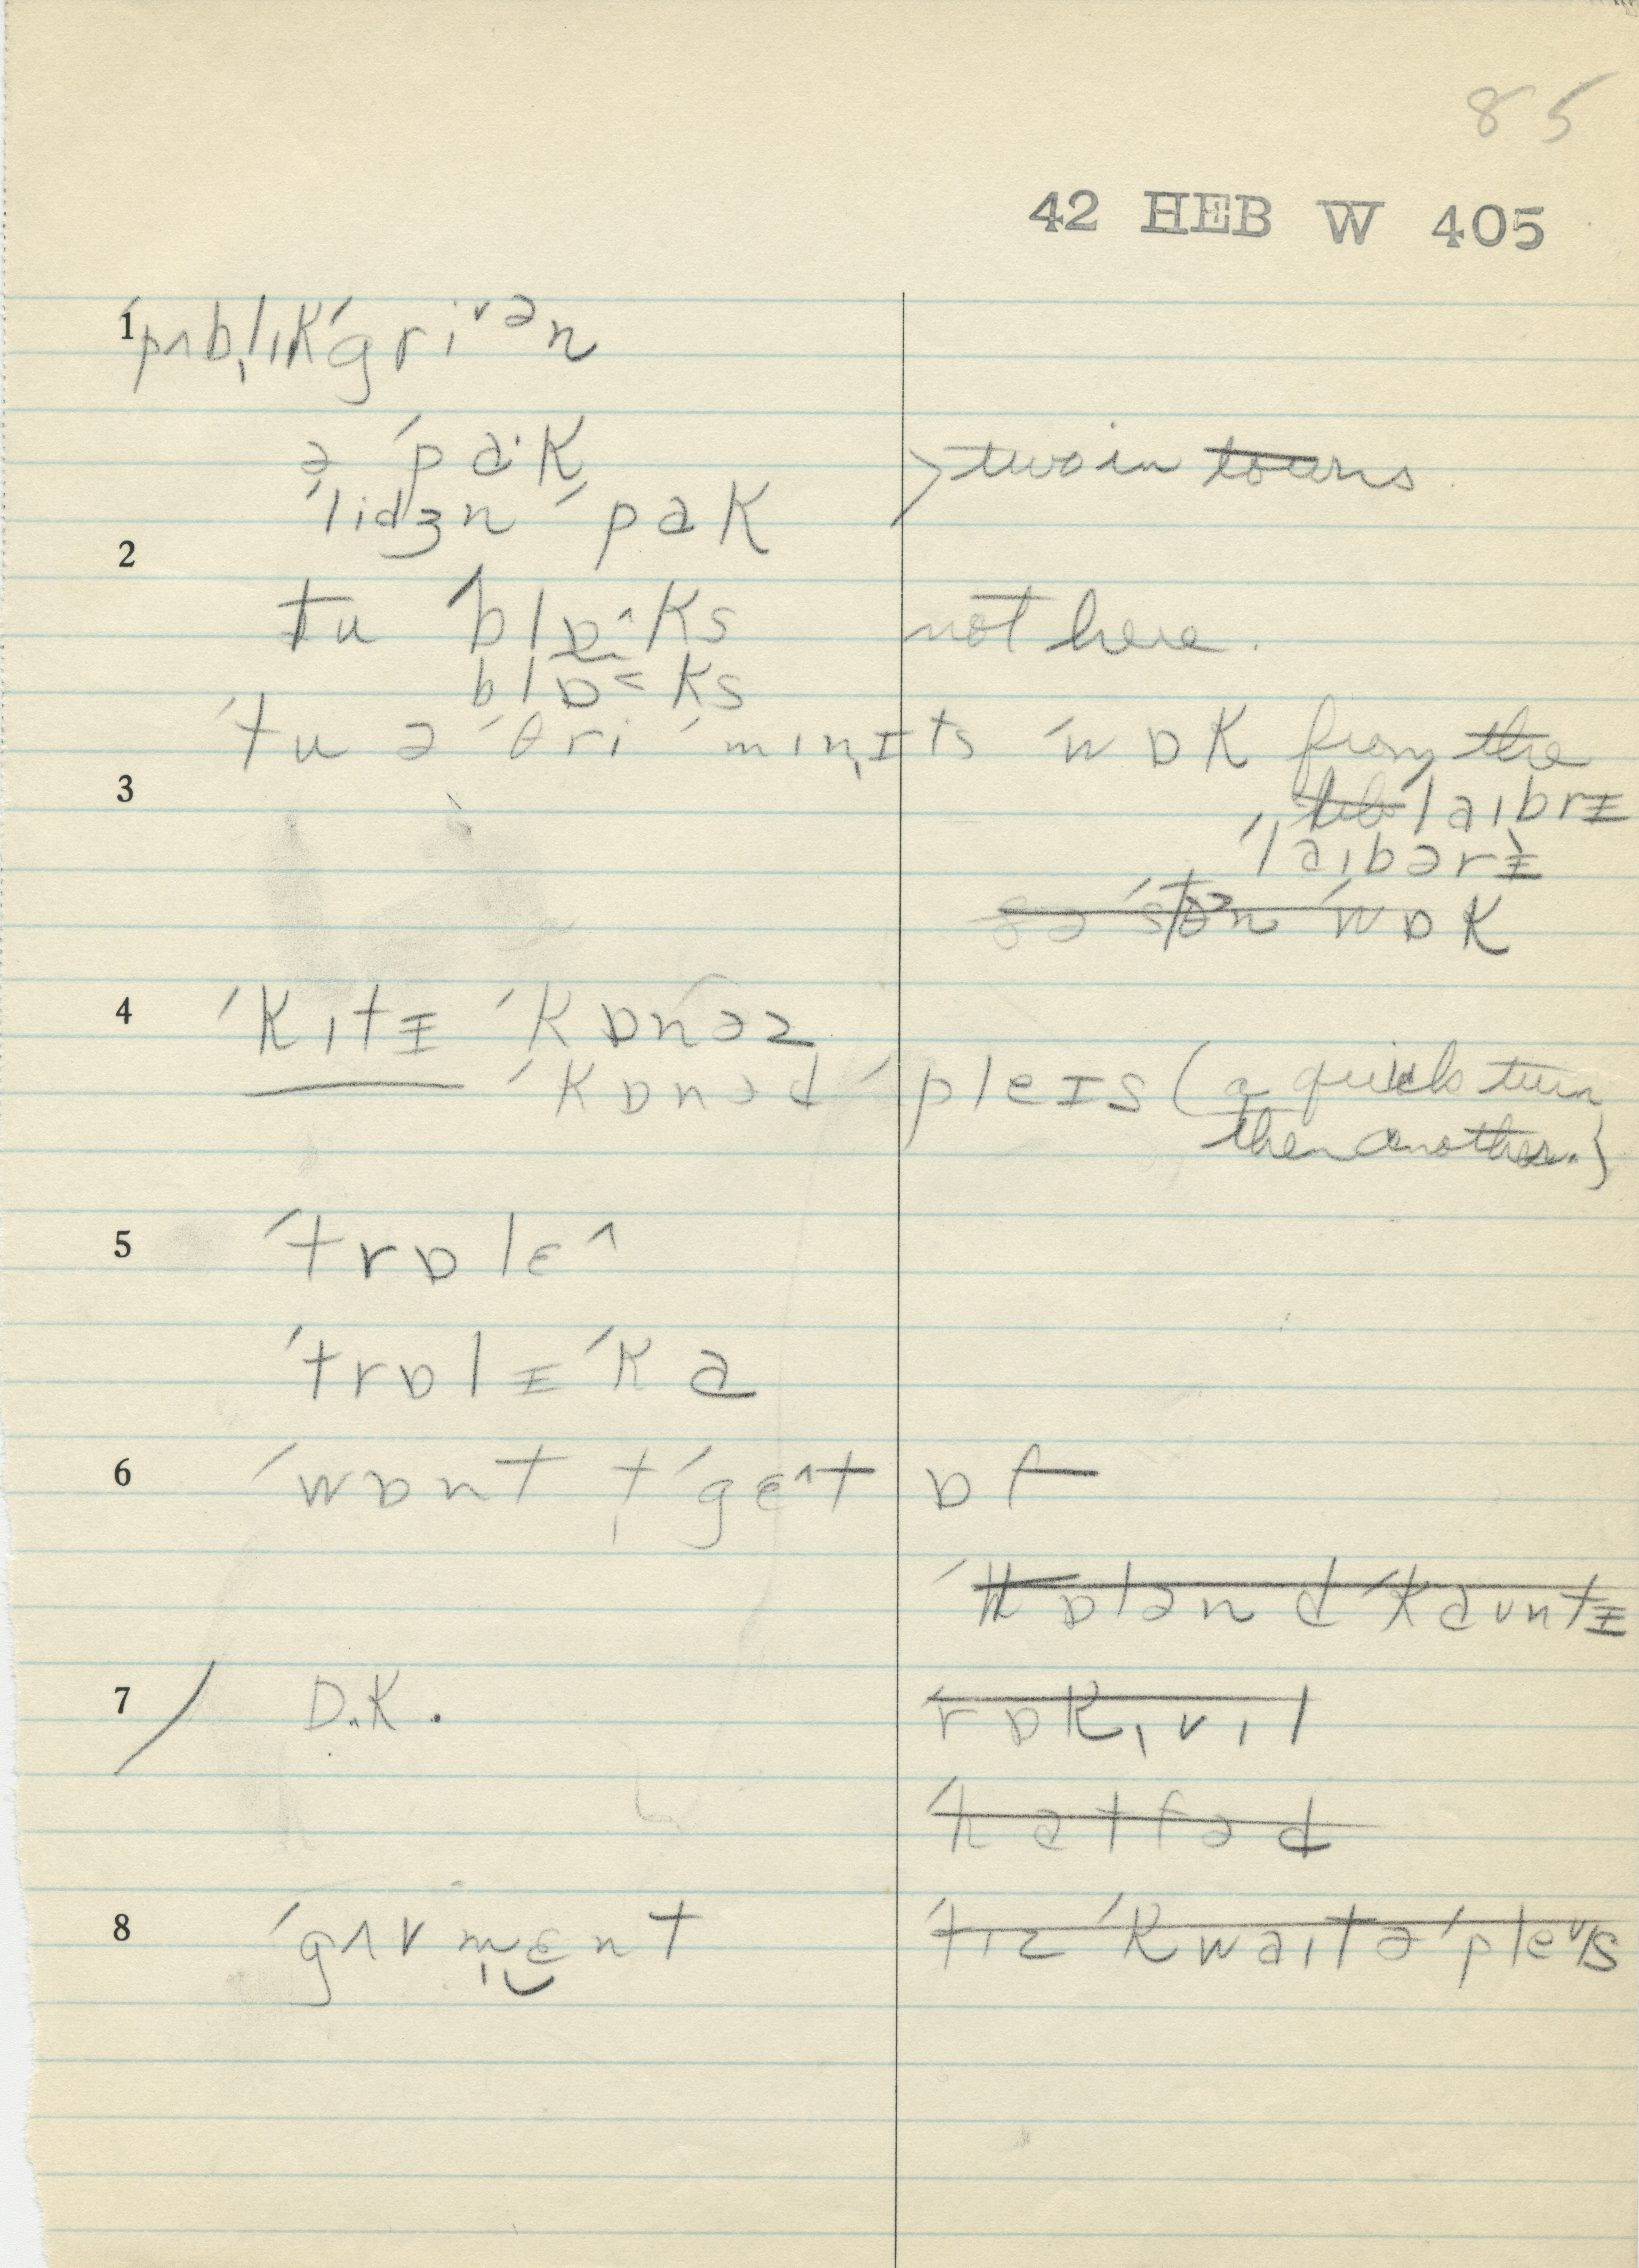 85
42 HEB W 405
1 ˈpʌb̩lɪkˈgriˑᵛən
ə ˈpaˑk > two in towns.
ˈlidʒn ˈpak
2
tu ˈblɒ^ks not here.
blɒ<ks
ˈtu ə ˈθri ˈmɪn̩ɪts ˈwɒk from the
3 ˈlaɪbrɪ
ˈlaɪbərɪ
sə ˈstən ˈwɒk
4 ˈkɪtɪ ˈkɒnəz
ˈkɒnəd ˈpleɪs (a quick turn
then another.)
5 ˈtrɒlɛ^
ˈtrɒlɪ ˈka
6 ˈwɒnt t̩ ˈgɛ^t ɒf
ˈhɒlənd ˈkauntɪ
7 D.K. ˈrɒkˌvɪl
ˈhatfəd
8 ˈgʌvm̩ɛnt ˈtɪz ˈkwaɪt ə ˈpleɪs